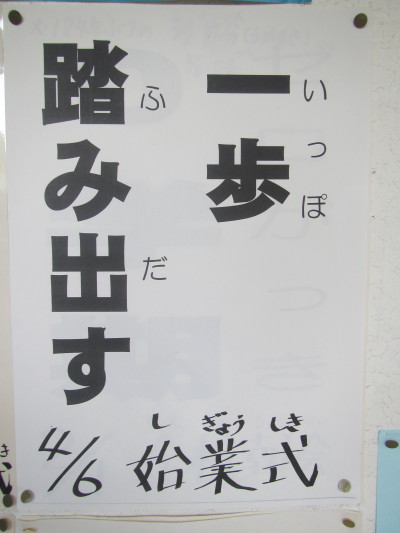 一歩
いっぽ
踏み出す
ふだ
しぎょうしき
4/6 始業式